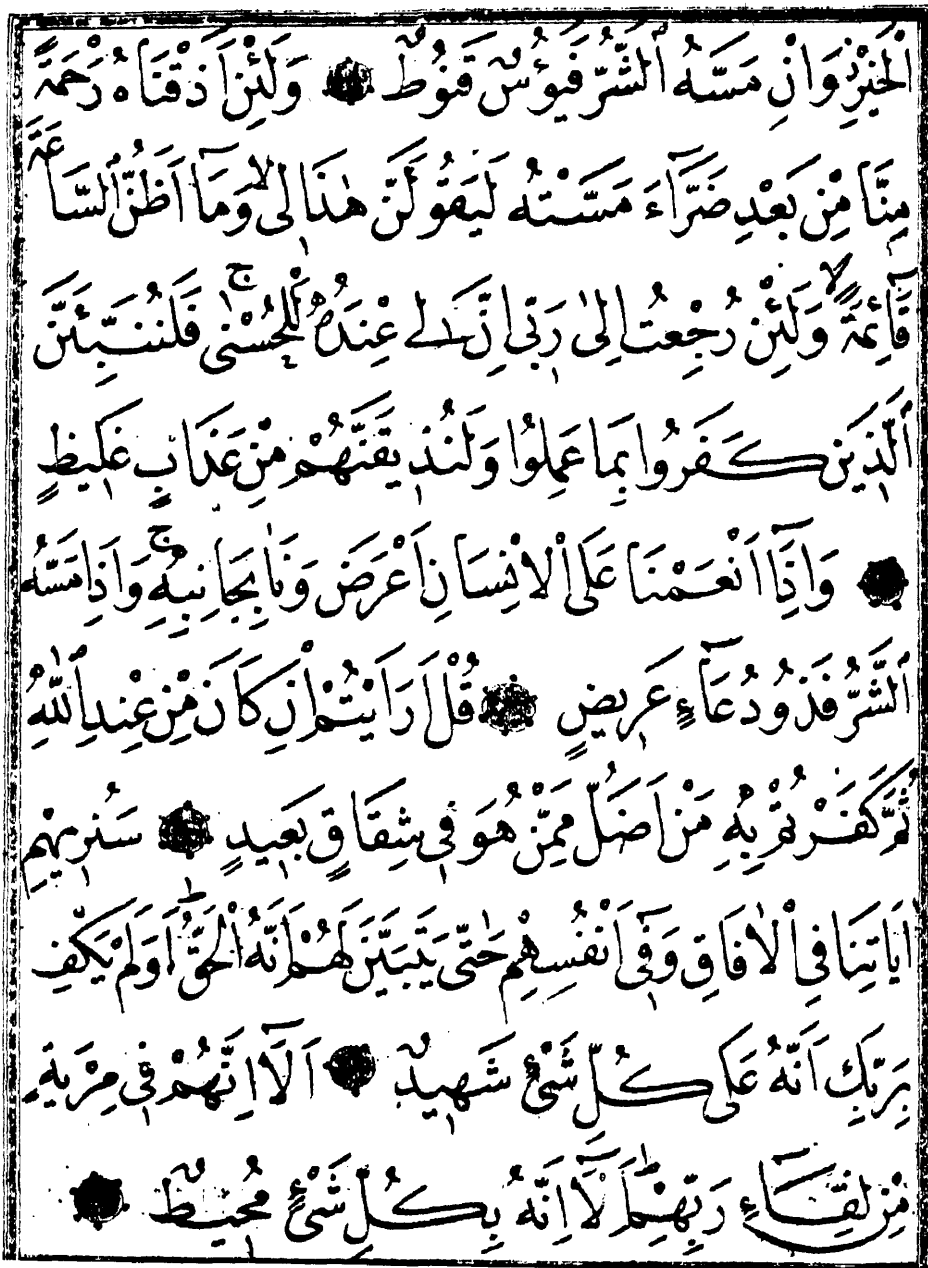 اَلْخَيْرِ وَاِنْ مَسَّهُ الشَّرُّ فَيَؤُسٌ قَنُوطٌ ۝ وَلَئِنْ اَذَقْنَاهُ رَحْمَةً
مِنَّا مِنْ بَعْدِ ضَرَّٓاءَ مَسَّتْهُ لَيَقُولَنَّ هٰذَا لٖى ۙ وَمَٓا اَظُنُّ السَّاعَةَ
قَٓائِمَةً ۙ وَلَئِنْ رُجِعْتُ اِلٰى رَبّٖٓى اِنَّ لٖى عِنْدَهُ لَلْحُسْنٰى ۚ فَلَنُنَبِّئَنَّ
الَّذٖينَ كَفَرُوا بِمَا عَمِلُوا وَلَنُذٖيقَنَّهُمْ مِنْ عَذَابٍ غَلٖيظٍ
۝ وَاِذَٓا اَنْعَمْنَا عَلَى الْاِنْسَانِ اَعْرَضَ وَنَاٰ بِجَانِبِهٖ ۚ وَاِذَا مَسَّهُ
الشَّرُّ فَذُو دُعَٓاءٍ عَرٖيضٍ ۝ قُلْ اَرَاَيْتُمْ اِنْ كَانَ مِنْ عِنْدِ اللّٰهِ
ثُمَّ كَفَرْتُمْ بِهٖ مَنْ اَضَلُّ مِمَّنْ هُوَ فٖى شِقَاقٍ بَعٖيدٍ ۝ سَنُرٖيهِمْ
اٰيَاتِنَا فِى الْاٰفَاقِ وَفٖٓى اَنْفُسِهِمْ حَتّٰى يَتَبَيَّنَ لَهُمْ اَنَّهُ الْحَقُّ ؕ اَوَلَمْ يَكْفِ
بِرَبِّكَ اَنَّهُ عَلٰى كُلِّ شَىْءٍ شَهٖيدٌ ۝ اَلَٓا اِنَّهُمْ فٖى مِرْيَةٍ
مِنْ لِقَٓاءِ رَبِّهِمْ ؕ اَلَٓا اِنَّهُ بِكُلِّ شَىْءٍ مُحٖيطٌ ۝